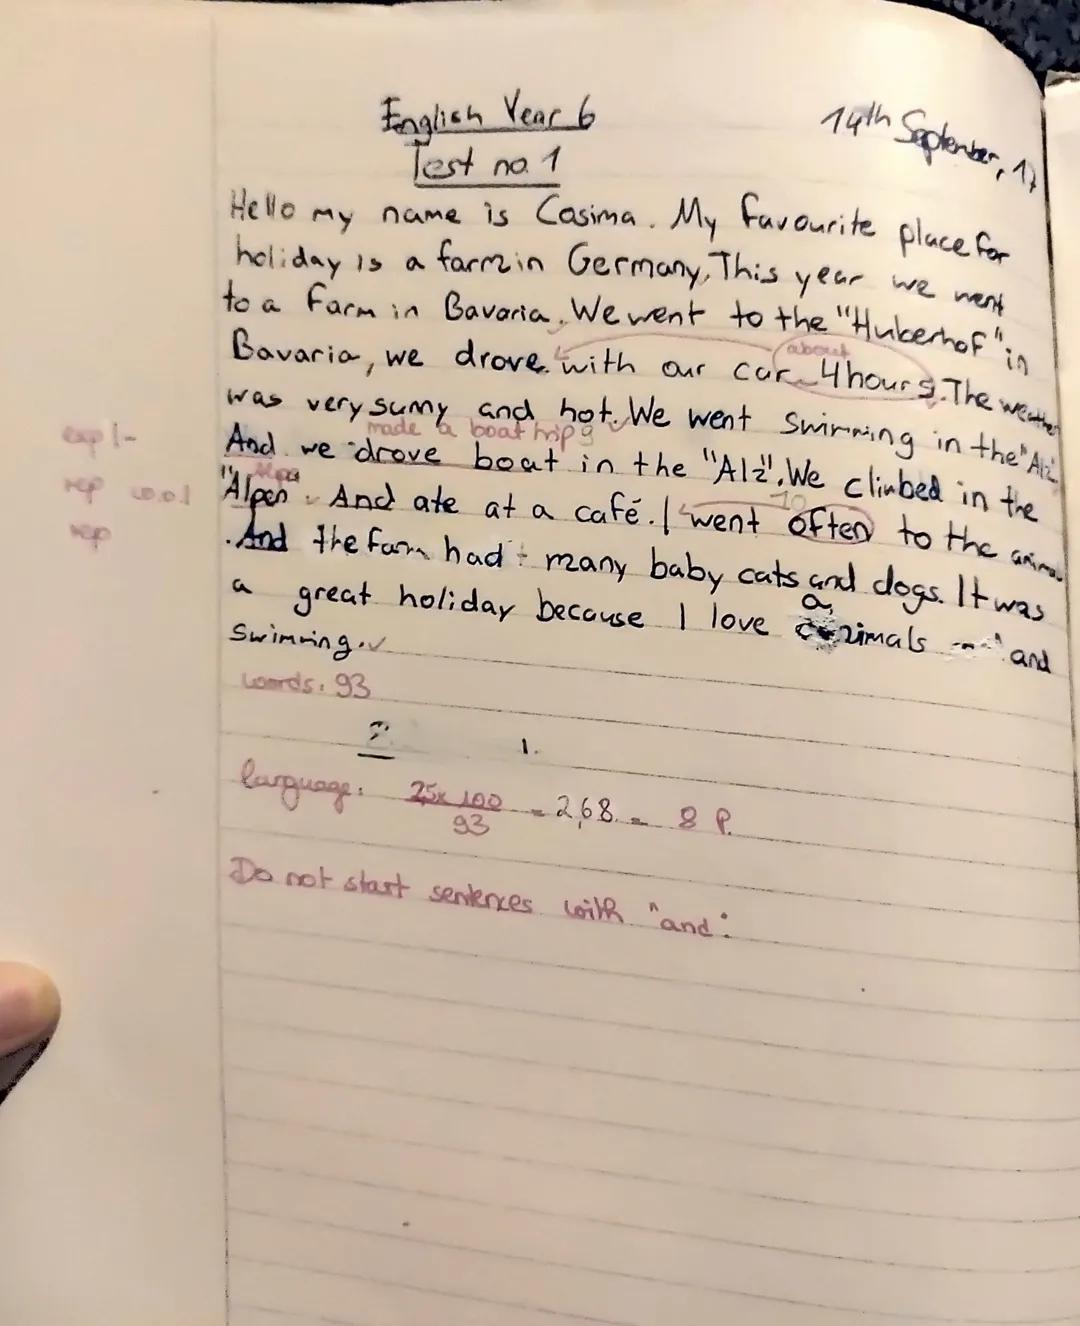 English Year 6
14th September, 17
Test no. 1
Hello my name is Cosima. My favourite place for
holiday is a farm in Germany. This year we went
to a farm in Bavaria. We went to the "Huberhof" in
about
Bavaria, we drove with our car 4 hours. The weather
was very sunny and hot. We went swimming in the "Alz"
made a boat trip
exp 1-
And we drove boat in the "Alz". We climbed in the
Alps
rep w.o.1
"Alpen". And ate at a café. I went often to the
rep
And the farm had many baby cats and dogs. It was
a great holiday because I love animals and
swimming.
words: 93
2. 1.
language: 25x100 / 93 = 2,68 = 8 P.
Do not start sentences with "and".